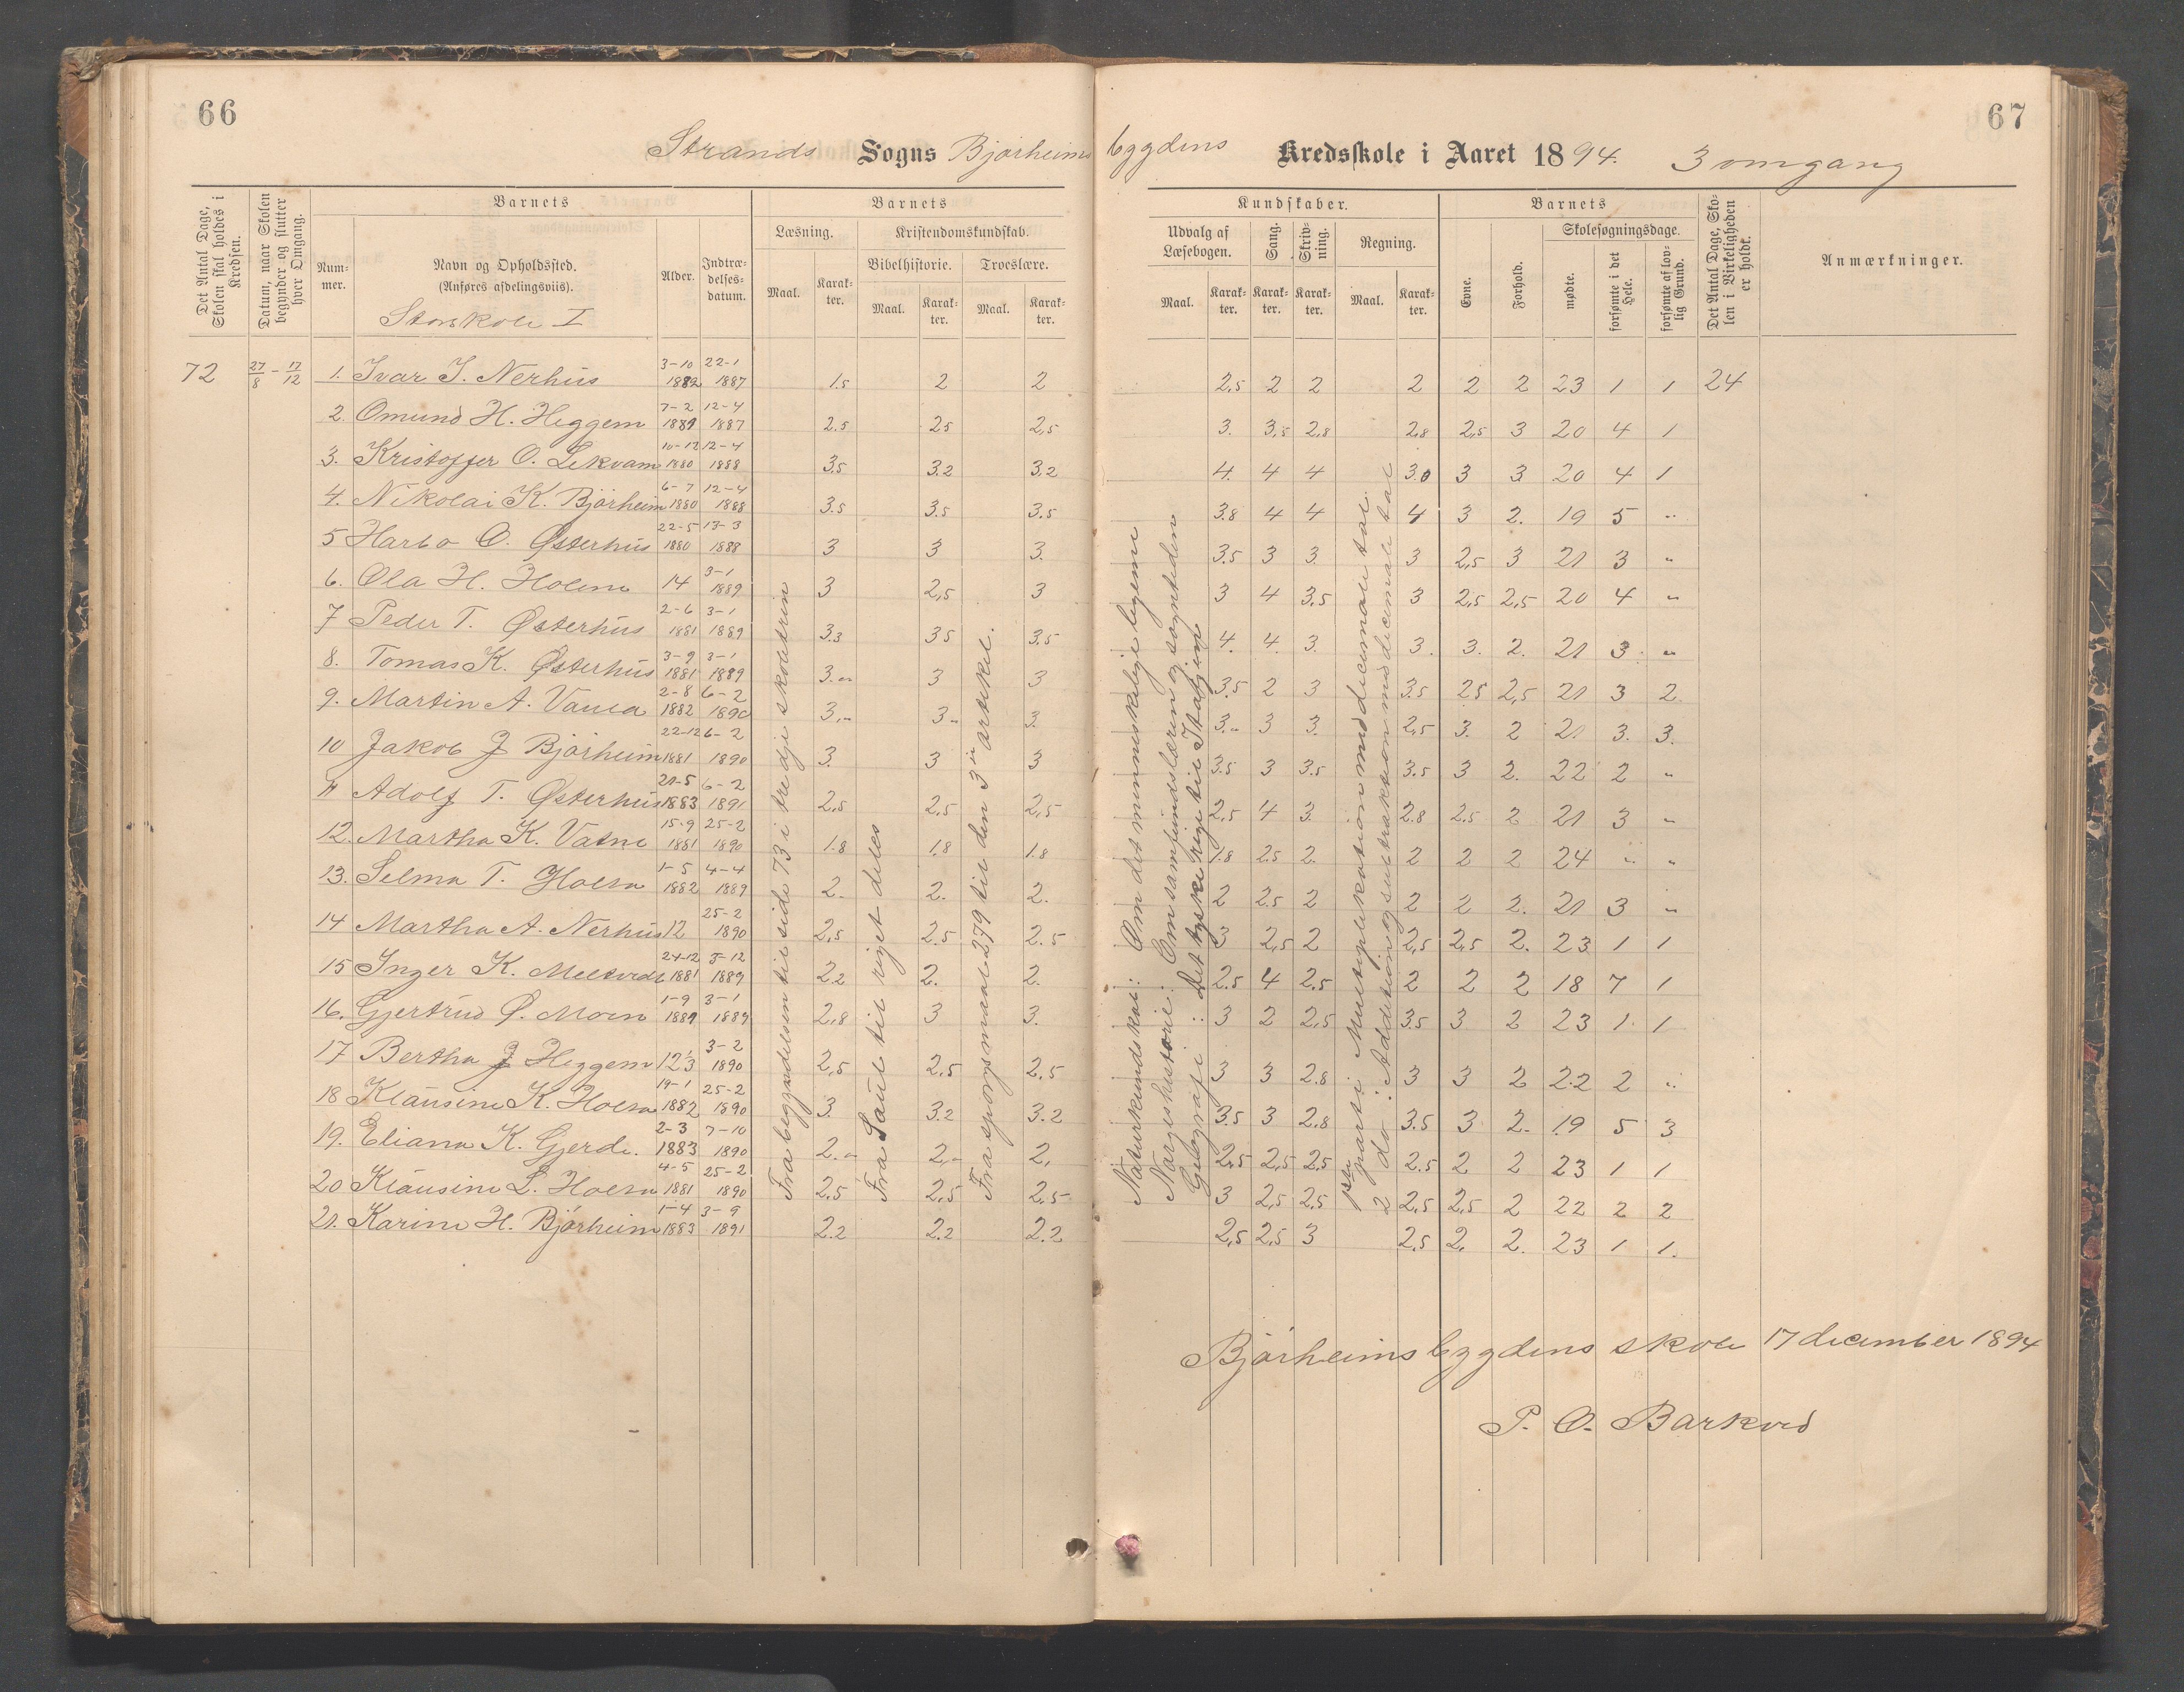 66
67
Strands Sogns Bjørheims bygdens Kredsskole i Aaret 1894. 3 omgang
Det Antal Dage, Skolen skal holdes i Kredsen.
Datum, naar Skolen begynder og slutter hver Omgang.
Barnets
Num-mer.
Navn og Opholdssted.
(Anføres afdelingsviis).
Storskole I
Alder.
Indtræ-delses-datum.
Barnets
Læsning.
Maal.
Karak-ter.
Kristendomskundskab.
Bibelhistorie.
Maal.
Karak-ter.
Troeslære.
Maal.
Karak-ter.
Kundskaber.
Udvalg af Læsebogen.
Maal.
Karak-ter.
Sang.
Karak-ter.
Skriv-ning.
Karak-ter.
Regning.
Maal.
Karak-ter.
Barnets
Evne.
Forhold.
Skolesøgningsdage.
mødte.
forsømte i det Hele.
forsømte af lov-lig Grund.
Det Antal Dage, Sko-len i Virkeligheden er holdt.
Anmærkninger.
72 27/8 - 17/12 1. Ivar I. Nerhus 3-10 1882 22-1 1887 1.5 2 2 2.5 2 2 2 2 2 23 1 1 24
2. Omund H. Heggem 7-2 1881 12-4 1887 2.5 2.5 2.5 3. 3.5 2.8 2.8 2.5 3 20 4 1
3. Kristoffer O. Lekvam 10-12 1880 12-4 1888 3.5 3.2 3.2 4. 4 4 3.0 3 3 20 4 1
4. Nikolai K. Bjørheim 6-7 1880 12-4 1888 3.5 3.5 3.5 3.8 4 4 4 3 2. 19 5 "
5 Harbo O. Østerhus 22-5 1880 13-3 1888 3 3 3. 3.5 3 3. 3 2.5 3 21 3 "
6. Ola H. Holem 14 3-1 1889 3 2.5 3 3 4 3.5 3 2.5 2.5 20 4 "
7 Peder T. Østerhus 2-6 1881 3-1 1889 3.3 3.5 3.5 4. 4. 3. 3. 3. 2. 21 3. "
8. Tomas K. Østerhus 3-9 1881 3-1 1889 3." 3 3 3.5 2 3 3.5 2.5 2.5 21 3 2.
9. Martin A. Vatne 2-8 1882 6-2 1890 3." 3" 3. 3." 3 3. 2.5 3. 2 21 3. 3.
10 Jakob J Bjørheim 22-12 1881 6-2 1890 3. 3 3 3.5 3 3.5 3.5 3 2. 22 2 "
11 Adolf T. Østerhus 21-5 1883 6-2 1891 2.5 2.5 2.5 2.5 4 3. 2.8 2.5 2 21 3 "
12. Martha K. Vatne 15-9 1881 25-2 1890 1.8 1.8 1.8 1.8 2.5 2. 2 2 2 24 " "
13. Selma T. Holem 1-5 1882 4-4 1889 2. 2. 2. 2 2.5 2 2 2 2. 21 3 "
14 Martha A. Nerhus 12 25-2 1890 2.5 2.5 2.5 3 2.5 2 2.5 2.5 2. 23 1 1
15 Inger K. Meltveds 24-12 1881 3-12 1889 2.2 2. 2. 2.5 4 2.5 2 2 2 18 7 1
16. Gjertrud Ø. Moen 1-9 1881 3-1 1889 2.8 3 3. 3 2 2.5 3.5 3 2 23 1. 1
17 Bertha J Heggem 12 1/3 3-2 1890 2.5 2.5 2.5 3 3 2.8 3 3 2 22 2 "
18 Klausine K. Holem 19-1 1882 25-2 1890 3. 3.2 3.2 3.5 3 2.8 3.5 3 2. 19 5 3
19. Eliana K. Gjerde. 2-3 1883 7-10 1890 2." 2." 2. 2.5 2.5 2.5 2.5 2 2 23 1 1
20 Klausine L. Holem 4-5 1881 25-2 1890 2.5 2.5 2.5 3 2.5 2.5 2.5 2.5 2 22 2 2
21. Karine H. Bjørheim 1-4 1883 3-9 1891 2.2 2.2 2.2 2.5 2.5 3 2.5 2. 2. 23 1 1.
Fra begyndelsen til side 73 i tredje skoletrin
Fra Saul til riget deles
Fra spørgsmaal 279 til den 3die artikel.
Naturkundskab: Om det menneskelige legeme
Norgeshistorie: Om samfundslæren og sognets
Geografi: Det tyske rige til Italien
1ste parti: Multiplikation med decimale tal.
2 do: Addition og subtraktion med decimale tal
Bjørheimsbygdens skole 17 december 1894
P. O. Barkved